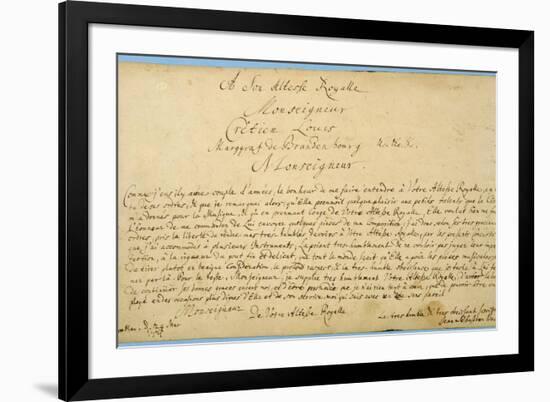 A Son Altesse Royalle
Monseigneur
Crétien Louis
Marggraf de Brandenbourg &c. &c. &c.
Monseigneur.
Comme j'eus il y a une couple d'années, le bonheur de me faire entendre à Votre Altesse Royalle, en
de ses ordres, & que je remarquai alors, qu'Elle prennoit quelque plaisir aux petits talents que le Ciel
m'a donnés pour la Musique, & qu'en prennant Conge de Votre Altesse Royalle, Elle voulut bien me faire
l'honneur de me commander de Lui envoyer quelques pieces de ma Composition: j'ai donc, selon ses tres gracieux
ordres, pris la liberté de rendre mes tres-humbles devoirs à Votre Altesse Royalle, par les presents
que j'ai accommodés à plusieurs Instruments; La priant tres-humblement de ne vouloir pas juger leur
fection, à la rigueur du gout fin et delicat, que tout le monde sçait qu'Elle a pour les pièces musicales;
de tirer plutot en benigne Consideration, le profond respect, & la tres-humble obeissance que
par là. Pour le reste, Monseigneur, je supplie tres humblement Votre Altesse Royalle, d'avoir la
de continuër ses bonnes graces envers moi, et d'être persuadée que je n'ai rien tant à cœur, que de pouvoir être
ployé en des occasions plus dignes d'Elle et de son service, moi qui suis avec un zele sans pareil
Monseigneur
De Votre Altesse Royalle
Le tres humble & tres obeissant
Jean Sebastien